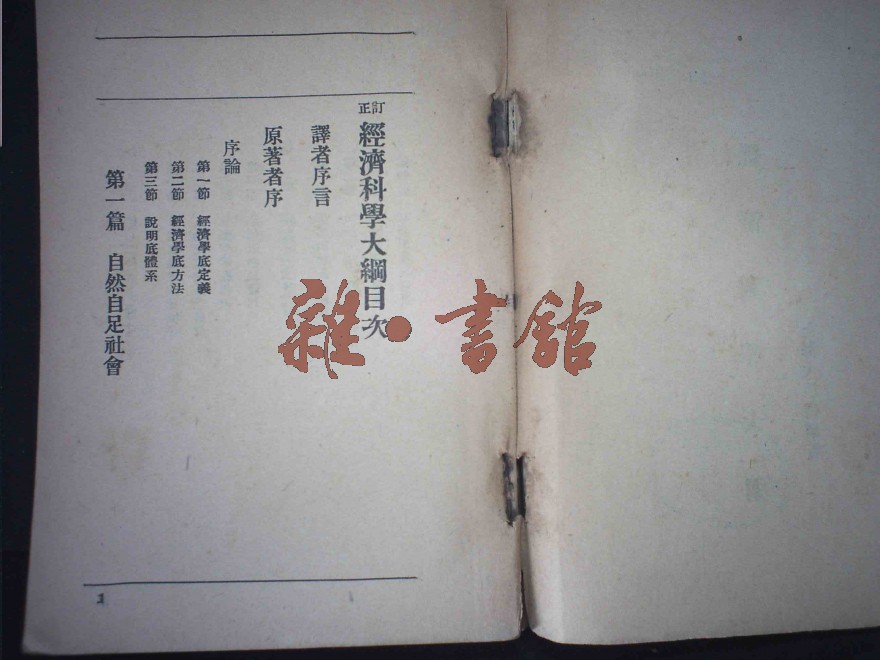 訂正 經濟科學大綱目次
譯者序言
原著者序
序論
第一節 經濟學底定義
第二節 經濟學底方法
第三節 說明底體系
第一篇 自然自足社會
1
雜·書館